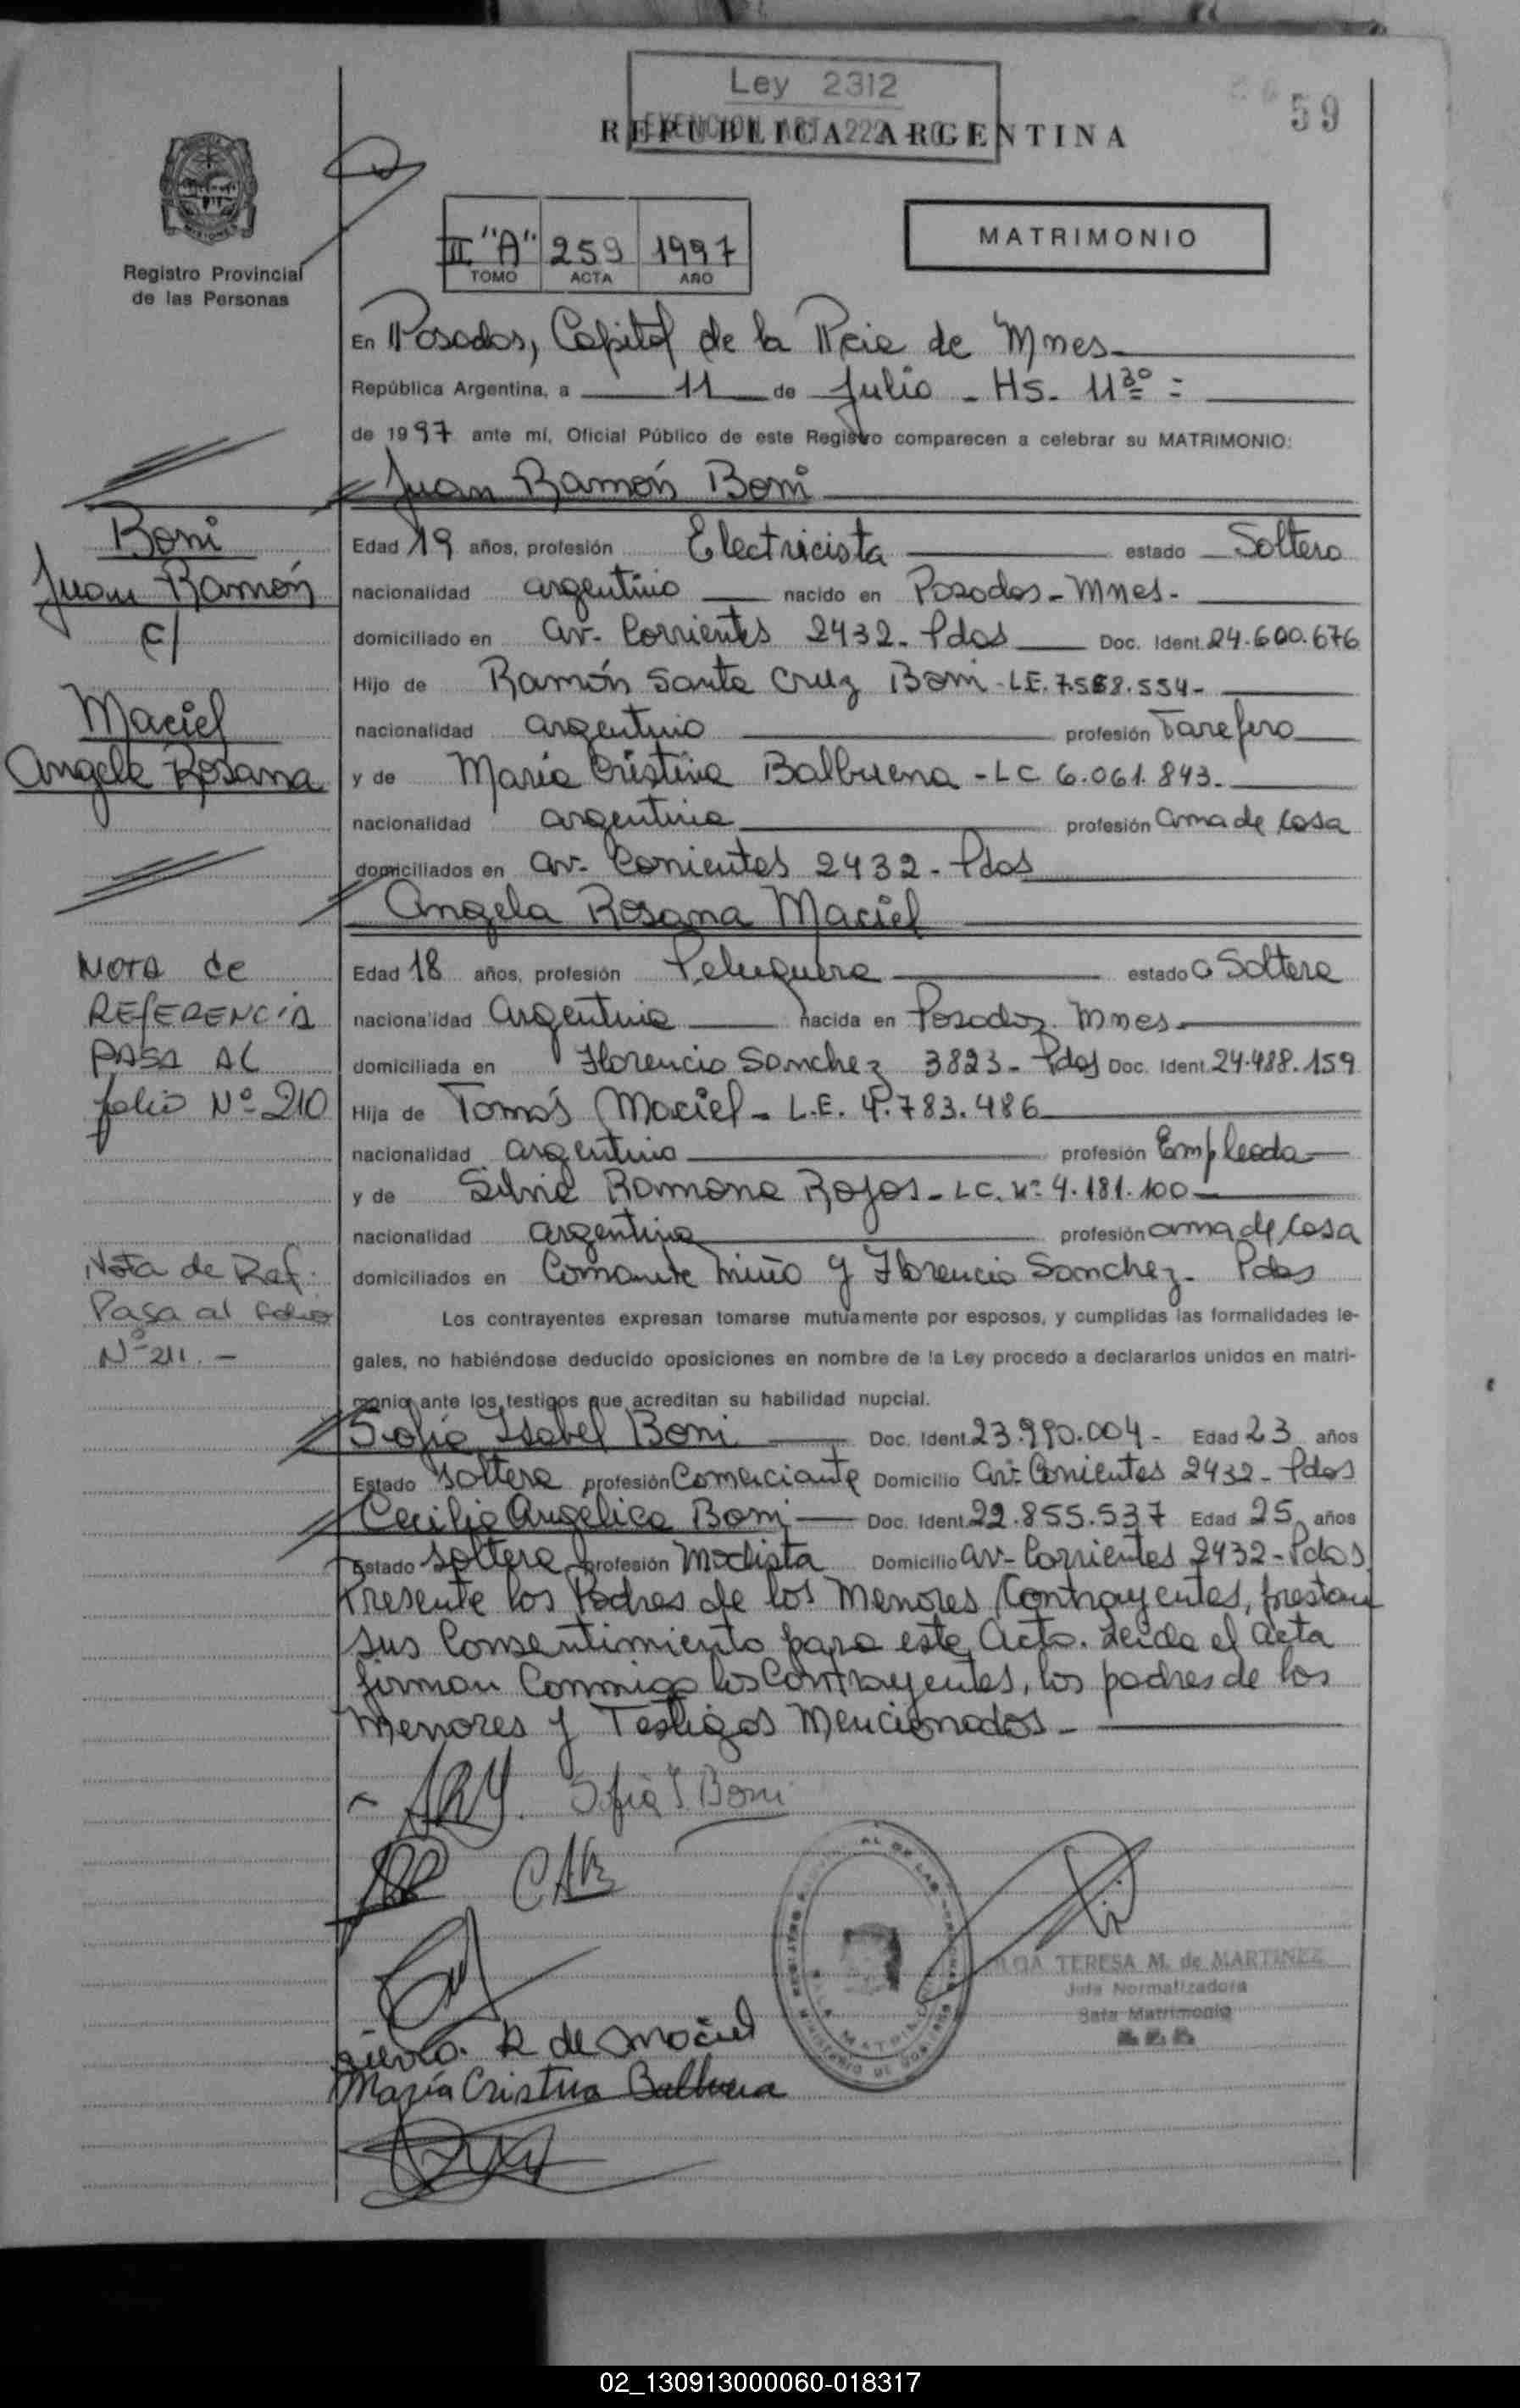 Ley 2312
REPUBLICA ARGENTINA
59
Registro Provincial
de las Personas
II "A" 259 1997
TOMO ACTA AÑO
MATRIMONIO
En Posadas, Capital de la Pcia de Mnes
República Argentina, a 11 de Julio - Hs. 11 30 =
de 1997 ante mí, Oficial Público de este Registro comparecen a celebrar su MATRIMONIO:
Juan Ramón Boni
Edad 19 años, profesión Electricista estado Soltero
nacionalidad argentino nacido en Posadas - Mnes -
domiciliado en av. Corrientes 2432 - Pdas Doc. Ident. 24.600.676
Hijo de Ramón Santa Cruz Boni - L.E. 7.568.554 -
nacionalidad argentino profesión Tarefero
y de María Cristina Balbuena - LC 6.061.843.
nacionalidad argentina profesión ama de casa
domiciliados en av. Corrientes 2432 - Pdas
Angela Rosana Maciel
Edad 18 años, profesión Peluquera estado Soltera
nacionalidad Argentina nacida en Posadas. Mnes
domiciliada en Florencio Sanchez 3823 - Pdas Doc. Ident. 24.488.159
Hija de Tomás Maciel - L.E. 4.783.486
nacionalidad argentino profesión Empleado
y de Silvia Ramona Rojas - LC. Nº 4.181.100
nacionalidad argentina profesión ama de casa
domiciliados en Comante Miño y Florencio Sanchez - Pdas
Los contrayentes expresan tomarse mutuamente por esposos, y cumplidas las formalidades le-
gales, no habiéndose deducido oposiciones en nombre de la Ley procedo a declararlos unidos en matri-
monio ante los testigos que acreditan su habilidad nupcial.
Sofia Isabel Boni Doc. Ident. 23.990.004 - Edad 23 años
Estado soltera profesión Comerciante Domicilio av. Corrientes 2432 - Pdas
Cecilia Angelica Boni Doc. Ident. 22.855.537 Edad 25 años
Estado soltera profesión Modista Domicilio av - Corrientes 2432 - Pdas
Presente los Padres de los Menores Contrayentes, prestan
sus Consentimiento para este Acto. Leida el acta
firman Conmigo los Contrayentes, los padres de los
Menores y Testigos Mencionados -
Sofia I. Boni
CAB
R de Maciel
María Cristina Balbuena
TERESA M. de MARTINEZ
Jefa Normalizadora
Sala Matrimonio
Boni
Juan Ramón
c/
Maciel
Angela Rosana
NOTA de
REFERENCIA
PASA AL
folio Nº 210
Nota de Ref.
Pasa al folio
Nº 211. -
02_130913000060-018317